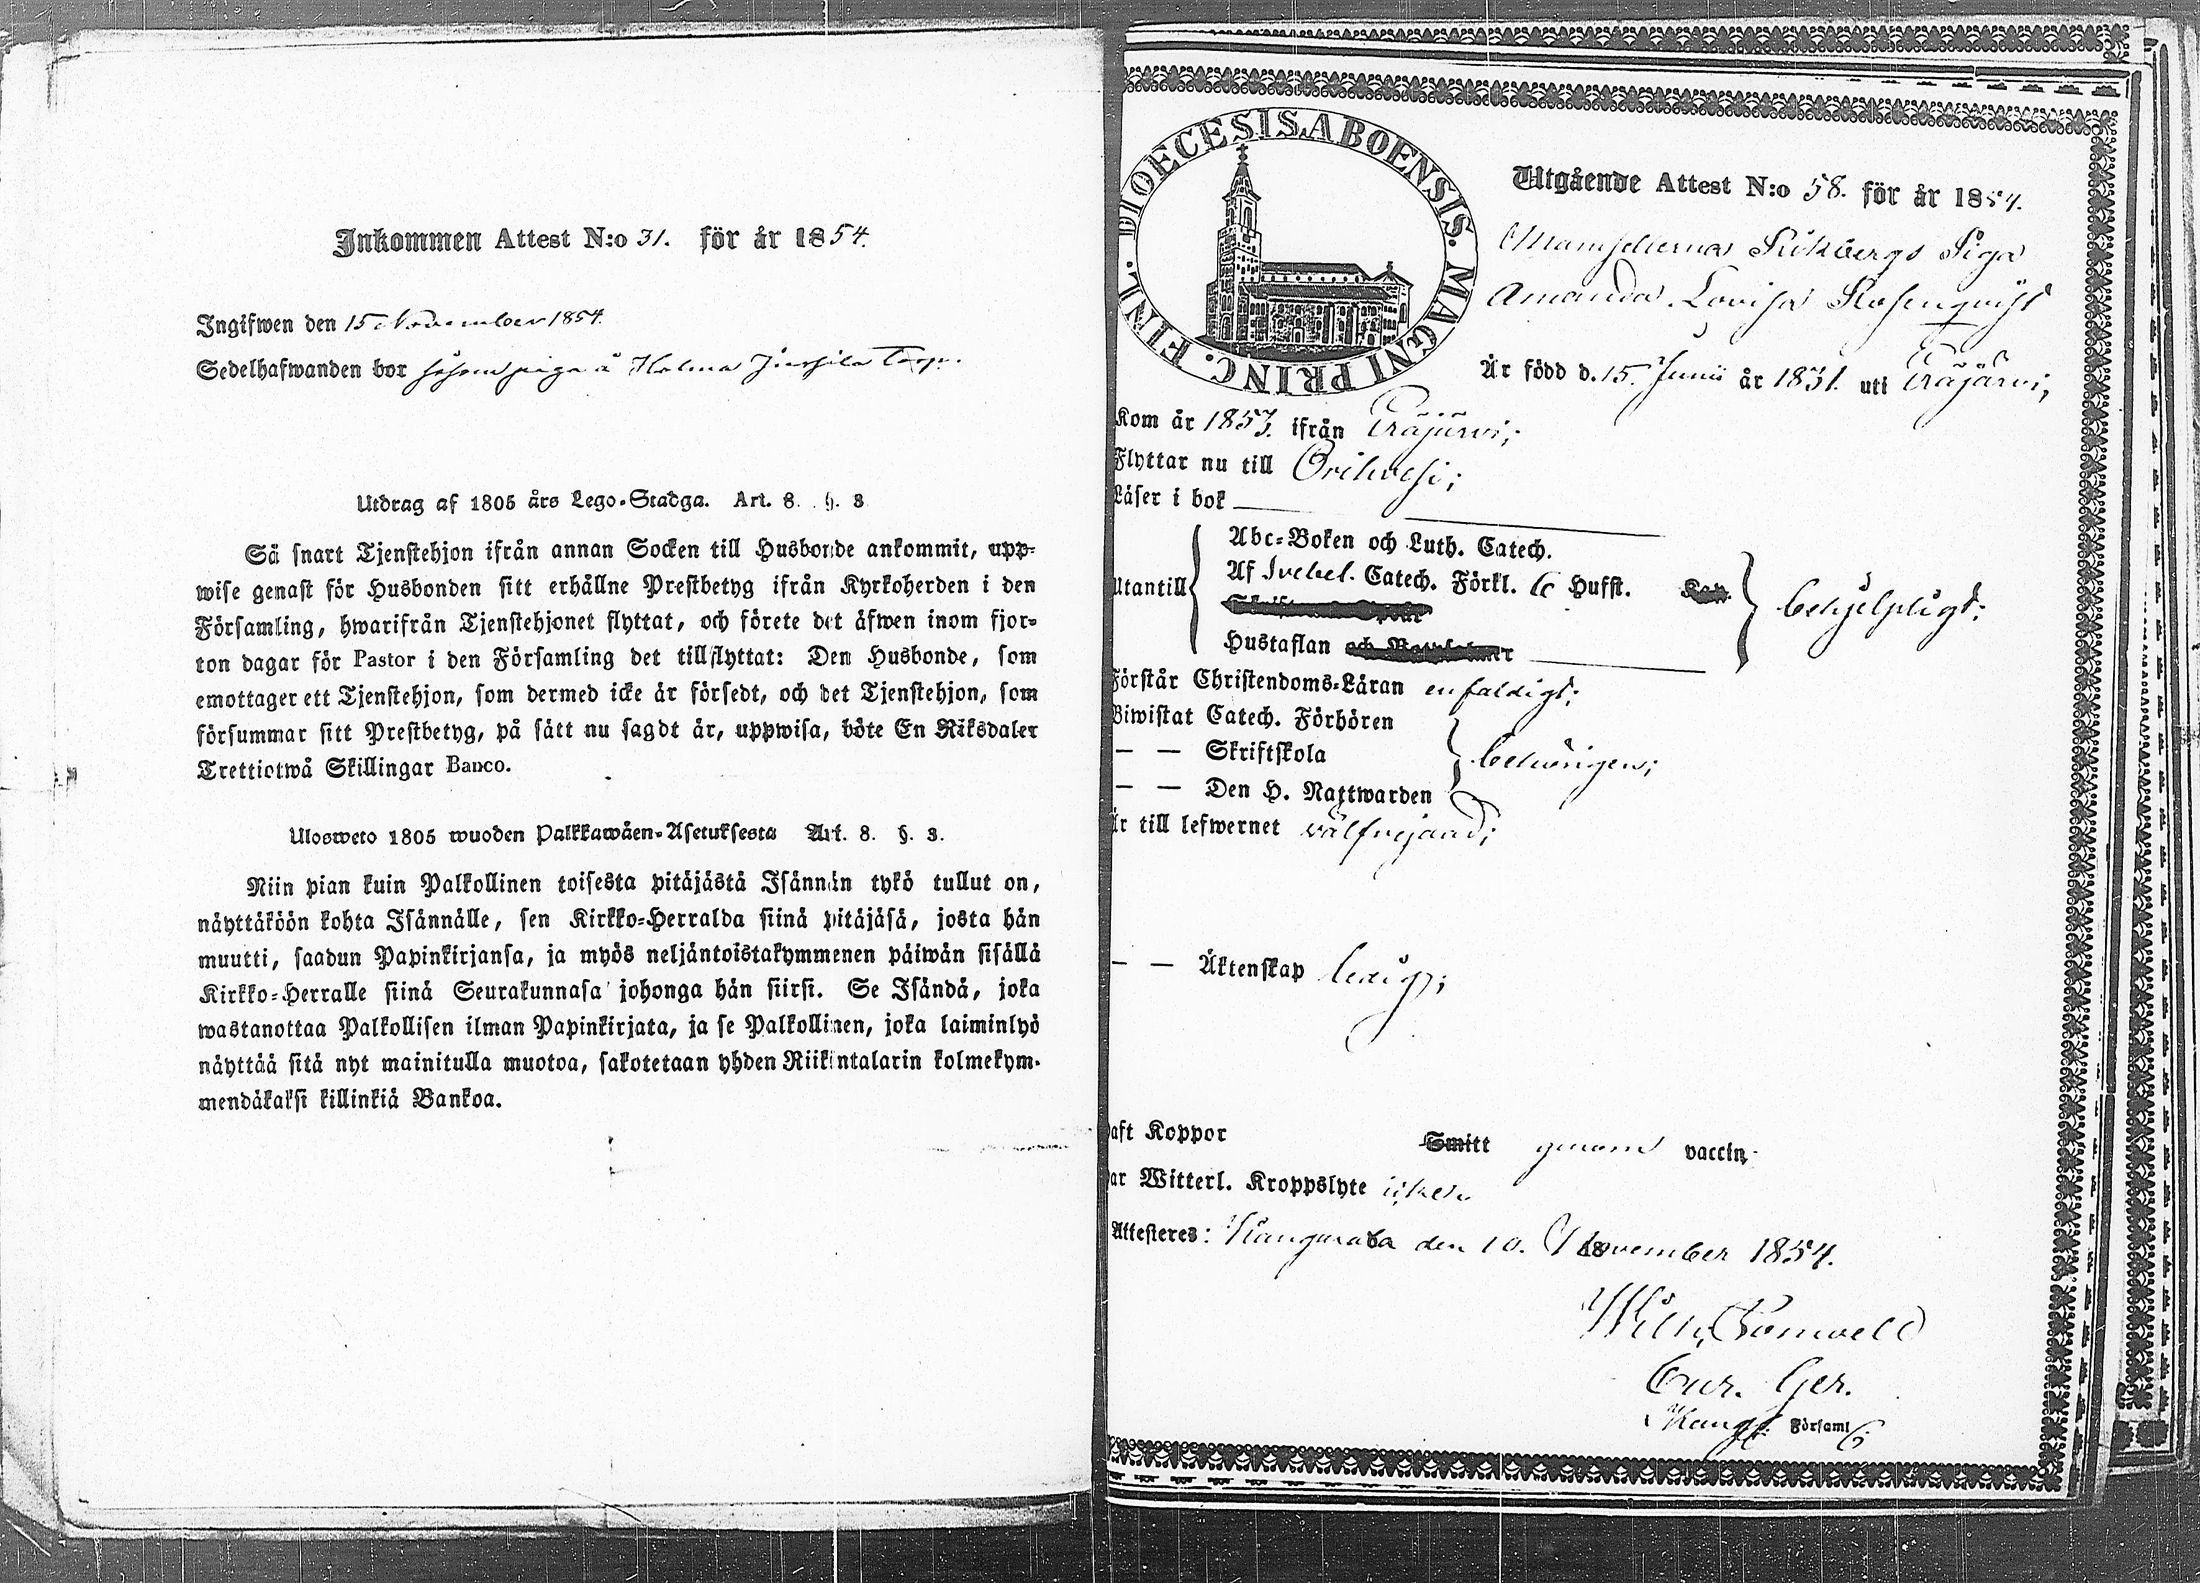 Inkommen Attest N:o 31. för år 1854.
Ingifwen den 15 November 1854.
Sedelhafwanden bor såsom piga å Holma Torp.
Utdrag af 1805 års Lego-Stadga. Art. 8. §. 3
Så snart Tjenstehjon ifrån annan Socken till Husbonde ankommit, upp-
wise genast för Husbonden sitt erhållne Prestbetyg ifrån Kyrkoherden i den
Församling, hwarifrån Tjenstehjonet flyttat, och förete det äfwen inom fjor-
ton dagar för Pastor i den Församling det tillflyttat: Den Husbonde, som
emottager ett Tjenstehjon, som dermed icke är försedt, och det Tjenstehjon, som
försummar sitt Prestbetyg, på sätt nu sagdt är, uppwisa, böte En Riksdaler
Trettiotwå Skillingar Banco.
Ulosweto 1805 wuoden Palkkawäen-Asetuksesta Art. 8. §. 3.
Niin pian kuin Palkollinen toisesta pitäjästä Isännän tykö tullut on,
näyttäköön kohta Isännälle, sen Kirkko-Herralda siinä pitäjäsä, josta hän
muutti, saadun Papinkirjansa, ja myös neljäntoistakymmenen päiwän sisällä
Kirkko-Herralle siinä Seurakunnasa johonga hän siirsi. Se Isändä, joka
wastanottaa Palkollisen ilman Papinkirjata, ja se Palkollinen, joka laiminlyö
näyttää sitä nyt mainitulla muotoa, sakotetaan yhden Riikintalarin kolmekym-
mendäkaksi killinkiä Bankoa.
DIOECESIS ABOENSIS. MAGNI PRINC. FINL.
Utgående Attest N:o 58. för år 1854.
Mamsellerna Piga
Amanda Lovisa Rosenqvist
Är född d. 15. Junii år 1831. uti Eräjärvi;
Kom år 1853. ifrån Eräjärvi;
Flyttar nu till Orihvesi;
Läser i bok
Utantill
Abc-Boken och Luth. Catech.
Af Svebel. Catech. Förkl. 6 Hufst. Kap.
Hustaflan
behjelpligt;
Förstår Christendoms-Läran enfaldigt;
Biwistat Catech. Förhören
— — Skriftskola
— — Den H. Nattwarden
behörigen;
Är till lefwernet välfrejdad;
— — Äktenskap ledig;
aft Koppor Smitt genom vaccin.
ar Witterl. Kroppslyte icke.
Attesteres: Kangasala den 10. November 1854.
18
Wilh.
Cur. Ger.
Kangs. Församl